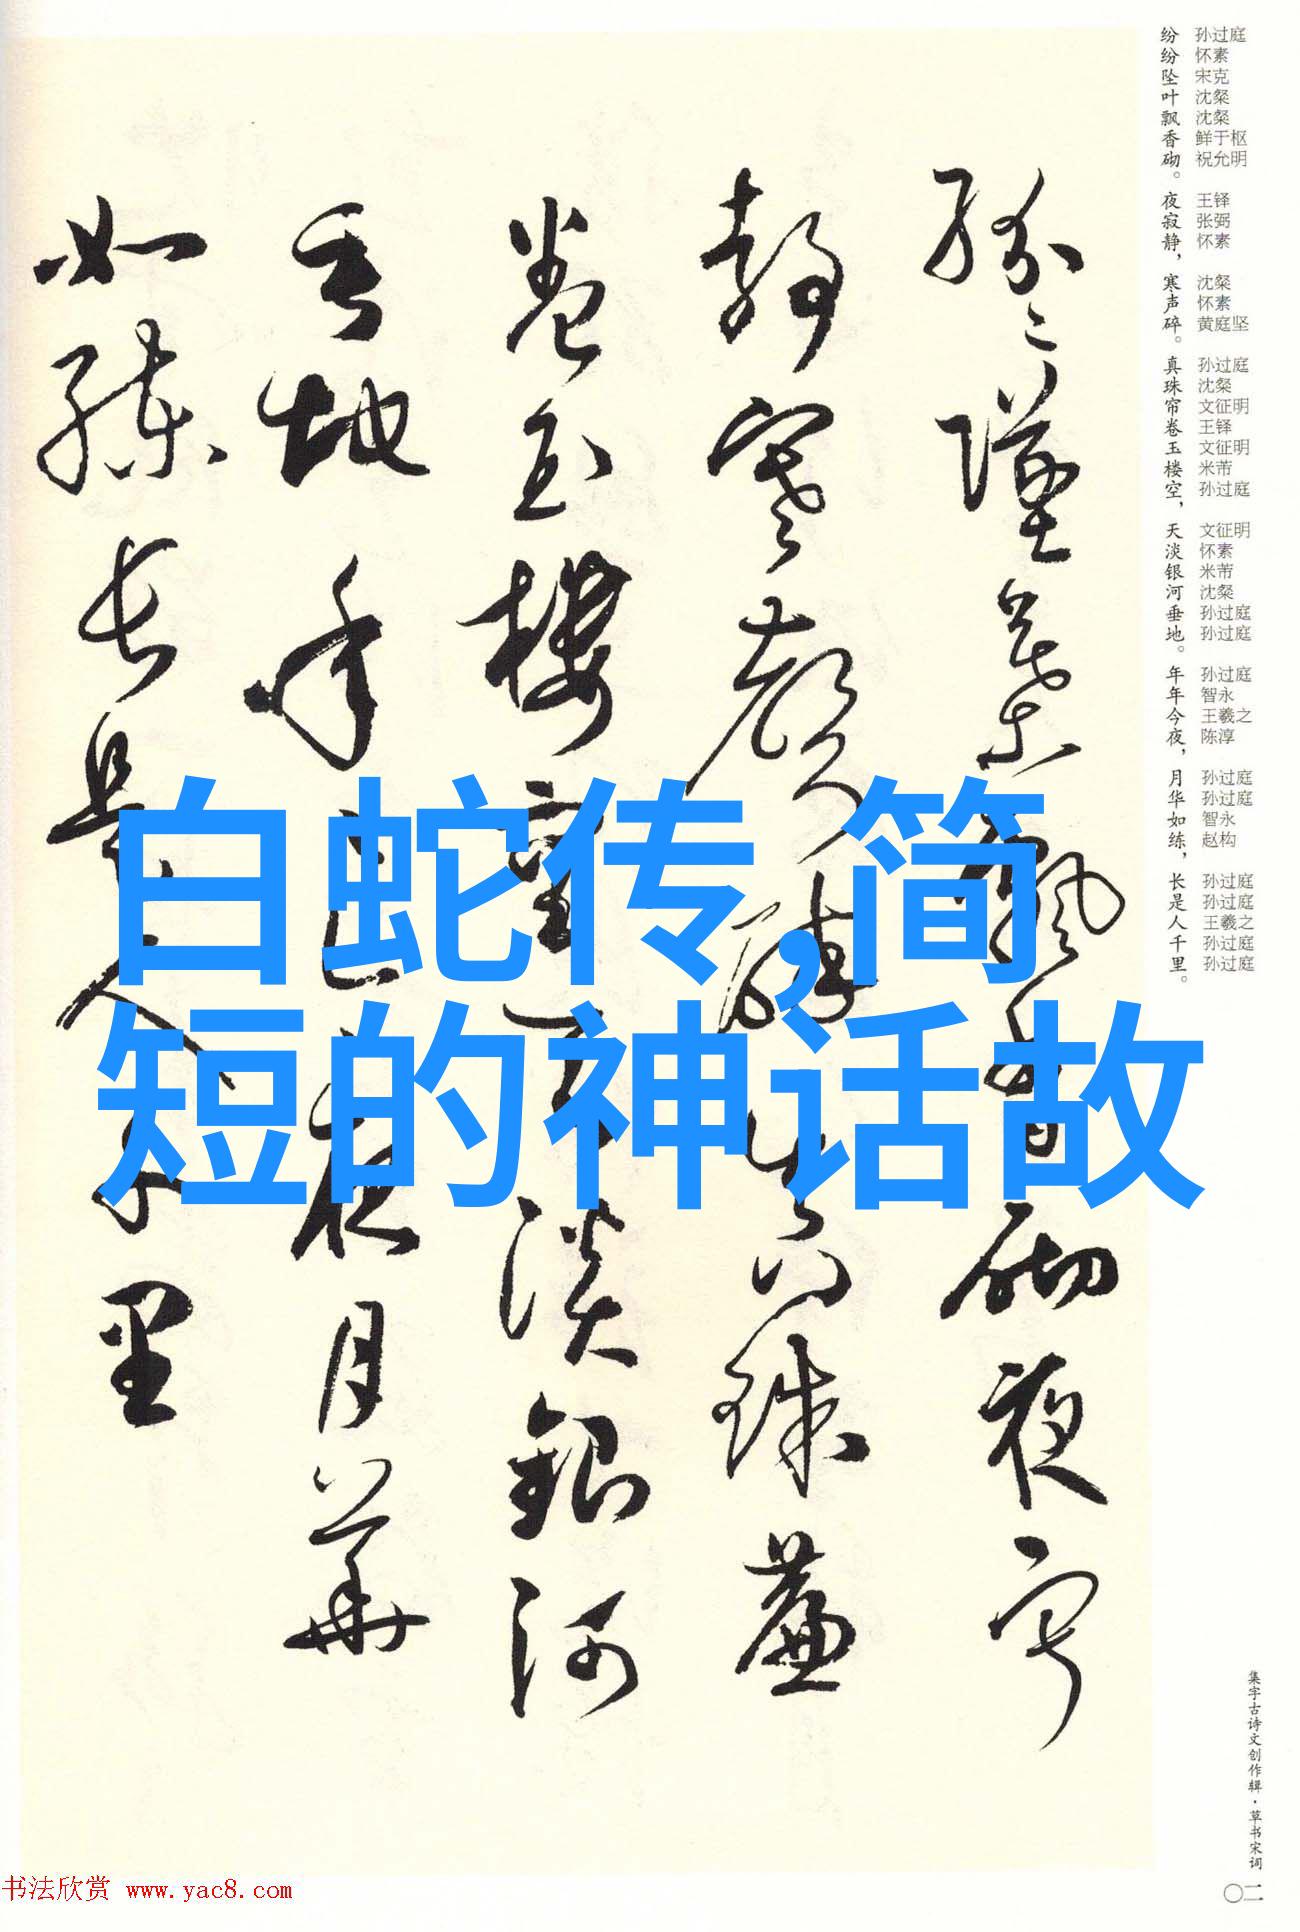 纷纷坠叶飘香砌。夜寂静，寒声碎。真珠帘卷玉楼空，天淡银河垂地。年年今夜，月华如练，长是人千里。
孙过庭
怀素
宋克
沈粲
沈粲
鲜于枢
祝允明
王铎
张弼
怀素
沈粲
怀素
黄庭坚
孙过庭
沈粲
文征明
王铎
文征明
米芾
孙过庭
文征明
怀素
米芾
沈粲
孙过庭
孙过庭
孙过庭
智永
王羲之
陈淳
孙过庭
孙过庭
智永
赵构
孙过庭
孙过庭
王羲之
孙过庭
孙过庭
纷纷坠叶飘香砌夜寂
静寒声碎真珠帘
卷玉楼空天淡银河
垂地年年今夜月华
如练长是人千里
白蛇传,简
短的神话故
集字古诗文创作辑·草书宋词
〇二
书法欣赏 www.yac8.com